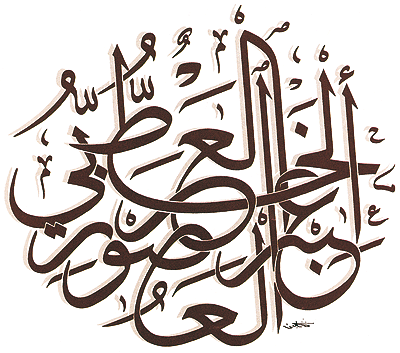 الخط العربي عبر العصور